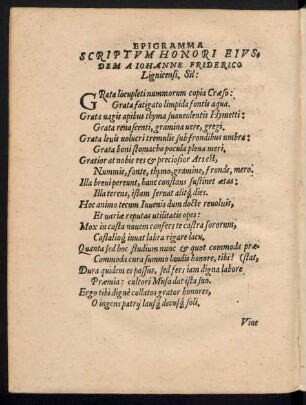 EPIGRAMMA
SCRIPTVM HONORI EIVS,
DEM A IOHANNE FRIDERICO
Lignicensi, Sil:
GRata locupleti nummorum copia Crœso:
Grata fatigato limpida fontis aqua.
Grata vagis apibus thyma suaveolentis Hymetti:
Grata renascenti, gramina vere, gregi.
Grata leui volucri tremulis sub frondibus umbra:
Grata boni stomacho pocula plena meri.
Gratior at nobis res & preciosior Ars est,
Nummis, fonte, thymo, gramine, fronde, mero.
Illa breui pereunt, hanc constans sustinet ætas:
Illa terens, istam fernat aliꝗ́; dies.
Hoc animo tecum Iuuenis dum docte reuoluis,
Et variæ reputas utilitatis opes:
Mox in casta nouem confers te castra sororum,
Castalioꝗ́; iuuat labra rigare lacu,
Quanta sed hoc studium nunc & quot commoda præ-
Commoda cura summo laudis honore, tibi? (stat,
Dura quidem es passus, sed fers iam digna labore
Præmia: cultori Musa dat ista suo.
Ergo tibi dignè collatos grator honores,
O ingens patrij lausꝗ́; decusꝗ́; soli,
Viue